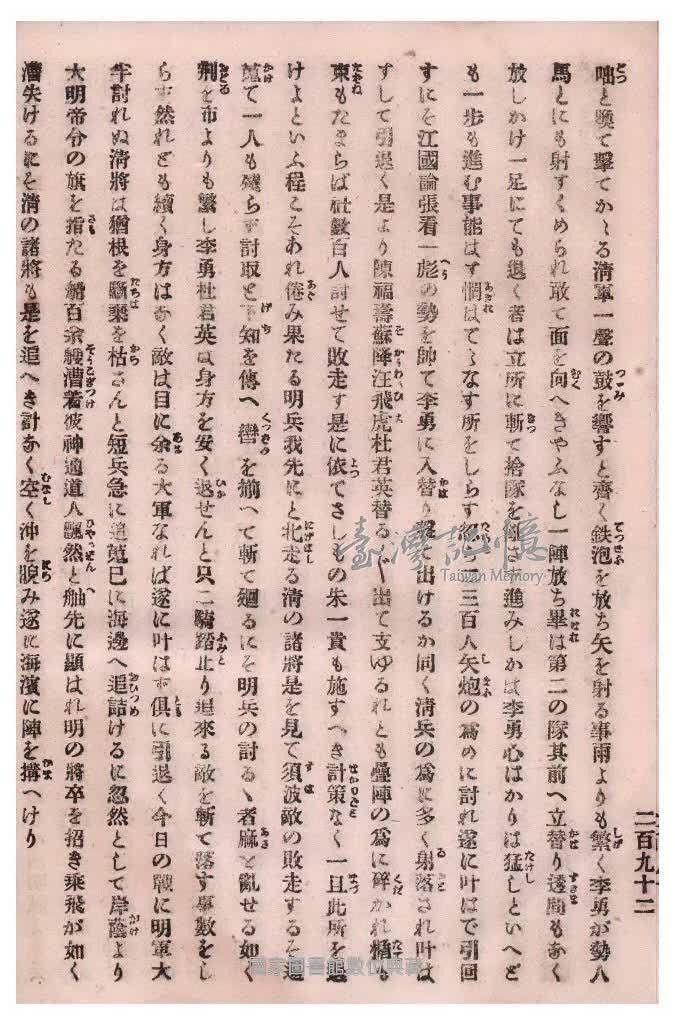 二百九十二
咄と喚て擊てかゝる清軍一聲の鼓を響すと齊く鉄泡を放ち矢を射る事雨よりも繁く李勇が勢人
馬とにも射すくめられ敢て面を向へきやふなし一陣放ち畢は第二の隊其前へ立替り透間もあく
放しかけ一足にても退く者は立所に斬て捨隊を乱さず進みしかは李勇心はかりは猛しといへど
も一歩も進む事能はず惘はてゝなす所をしらす忽ち二三百人矢炮の爲めに討れ遂に叶はで引回
すにぞ江國論張看一彪の勢を帥て李勇に入替り擊て出けるか同く清兵の爲に多く射落され叶は
すして引退く是より陳福壽蘇降汪飛虎杜君英替る〳〵出て支ゆるれとも疊陣の爲に碎かれ楯も
束もたまらば社數百人討せて敗走す是に依てさしもの朱一貴も施すへき計策なく一旦此所を退
けよといふ程こそあれ倦み果たる明兵我先にと北走る清の諸將是を見て須波敵の敗走するを追
蒐て一人も殘らず討取と下知を傳へ轡を揃へて斬て廻るにぞ明兵の討るゝ者麻と亂せる如く
荆を市よりも繁し李勇杜君英は身方を安く退せんと只二騎踏止り追來る敵を斬て落す事數をし
らず然れども續く身方はあく敵は目に余る大軍なれば遂に叶はず俱に引退く今日の戰に明軍大
半討れぬ清將は猶根を斷葉を枯さんと短兵急に追蒐已に海邊へ追詰けるに忽然として岸蔭より
大明帝分の旗を指たる艚百余艘漕着彼神適道人飄然と舳先に顯はれ明の將卒を招き乘飛が如く
漕失けるにぞ清の諸將も是を追へき計あく空く沖を睨み遂に海濱に陣を搆へけり
臺灣記憶
Taiwan Memory
國家圖書館數位典藏